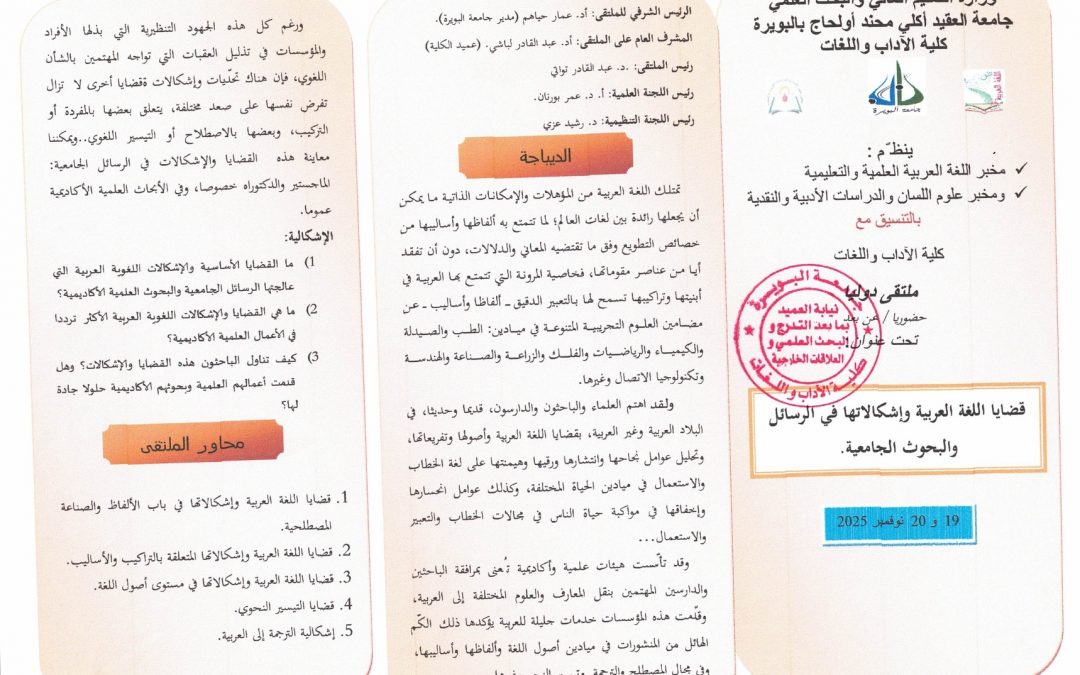 جامعة العقيد أكلي محند أولحاج بالبويرة
كلية الآداب واللغات
جامعة البويرة
ينظّم :
✓ مخبر اللغة العربية العلمية والتعليمية
✓ ومخبر علوم اللسان والدراسات الأدبية والنقدية
بالتنسيق مع
كلية الآداب واللغات
ملتقى دوليا
حضوريا / عن بعد
تحت عنوان:
جامعة البويرة
نيابة العميد
بما بعد التدرج و
البحث العلمي و
العلاقات الخارجية
كلية الآداب واللغات
قضايا اللغة العربية وإشكالاتها في الرسائل
والبحوث الجامعية.
19 و 20 نوفمبر 2025
الرئيس الشرفي للملتقى: أد. عمار حياهم (مدير جامعة البويرة).
المشرف العام على الملتقى: أد. عبد القادر لباشي. (عميد الكلية)
رئيس الملتقى: .د. عبد القادر تواتي
رئيس اللجنة العلمية: أ. د. عمر بورنان.
رئيس اللجنة التنظيمية: د. رشيد عزي
الديباجة
تمتلك اللغة العربية من المؤهلات والإمكانات الذاتية ما يمكن
أن يجعلها رائدة بين لغات العالم؛ لما تتمتع به ألفاظها وأساليبها من
خصائص التطويع وفق ما تقتضيه المعاني والدلالات، دون أن تفقد
أيا من عناصر مقوماتها، فخاصية المرونة التي تتمتع بها العربية في
أبنيتها وتراكيبها تسمح لها بالتعبير الدقيق ـ ألفاظا وأساليب ـ عن
مضامين العلوم التجريبية المتنوعة في ميادين: الطب والصيدلة
والكيمياء والرياضيات والفلك والزراعة والصناعة والهندسة
وتكنولوجيا الاتصال وغيرها.
ولقد اهتم العلماء والباحثون والدارسون، قديما وحديثا، في
البلاد العربية وغير العربية، بقضايا اللغة العربية وأصولها وتفريعاتها،
وتحليل عوامل نجاحها وانتشارها ورقيها وهيمنتها على لغة الخطاب
والاستعمال في ميادين الحياة المختلفة، وكذلك عوامل انحسارها
وإخفاقها في مواكبة حياة الناس في مجالات الخطاب والتعبير
والاستعمال...
وقد تأسّست هيئات علمية وأكاديمية تُعنى بمرافقة الباحثين
والدارسين المهتمين بنقل المعارف والعلوم المختلفة إلى العربية،
وقدّمت هذه المؤسسات خدمات جليلة للعربية يؤكدها ذلك الكمّ
الهائل من المنشورات في ميادين أصول اللغة وألفاظها وأساليبها،
وفي مجال المصطلح والترجمة
ورغم كل هذه الجهود التنظيرية التي بذلها الأفراد
والمؤسسات في تذليل العقبات التي تواجه المهتمين بالشأن
اللغوي، فإن هناك تحديات وإشكالات ةقضايا أخرى لا تزال
تفرض نفسها على صعد مختلفة، يتعلق بعضها بالمفردة أو
التركيب، وبعضها بالاصطلاح أو التيسير اللغوي..ويمكننا
معاينة هذه القضايا والإشكالات في الرسائل الجامعية:
الماجستير والدكتوراه خصوصا، وفي الأبحاث العلمية الأكاديمية
عموما.
الإشكالية:
1) ما القضايا الأساسية والإشكالات اللغوية العربية التي
عالجتها الرسائل الجامعية والبحوث العلمية الأكاديمية؟
2) ما هي القضايا والإشكالات اللغوية العربية الأكثر ترددا
في الأعمال العلمية الأكاديمية؟
3) كيف تناول الباحثون هذه القضايا والإشكالات؟ وهل
قدمت أعمالهم العلمية وبحوثهم الأكاديمية حلولا جادة
لها؟
محاور الملتقى
1. قضايا اللغة العربية وإشكالاتها في باب الألفاظ والصناعة
المصطلحية.
2. قضايا اللغة العربية وإشكالاتها المتعلقة بالتراكيب والأساليب.
3. قضايا اللغة العربية وإشكالاتها في مستوى أصول اللغة.
4. قضايا التيسير النحوي.
5. إشكالية الترجمة إلى العربية.